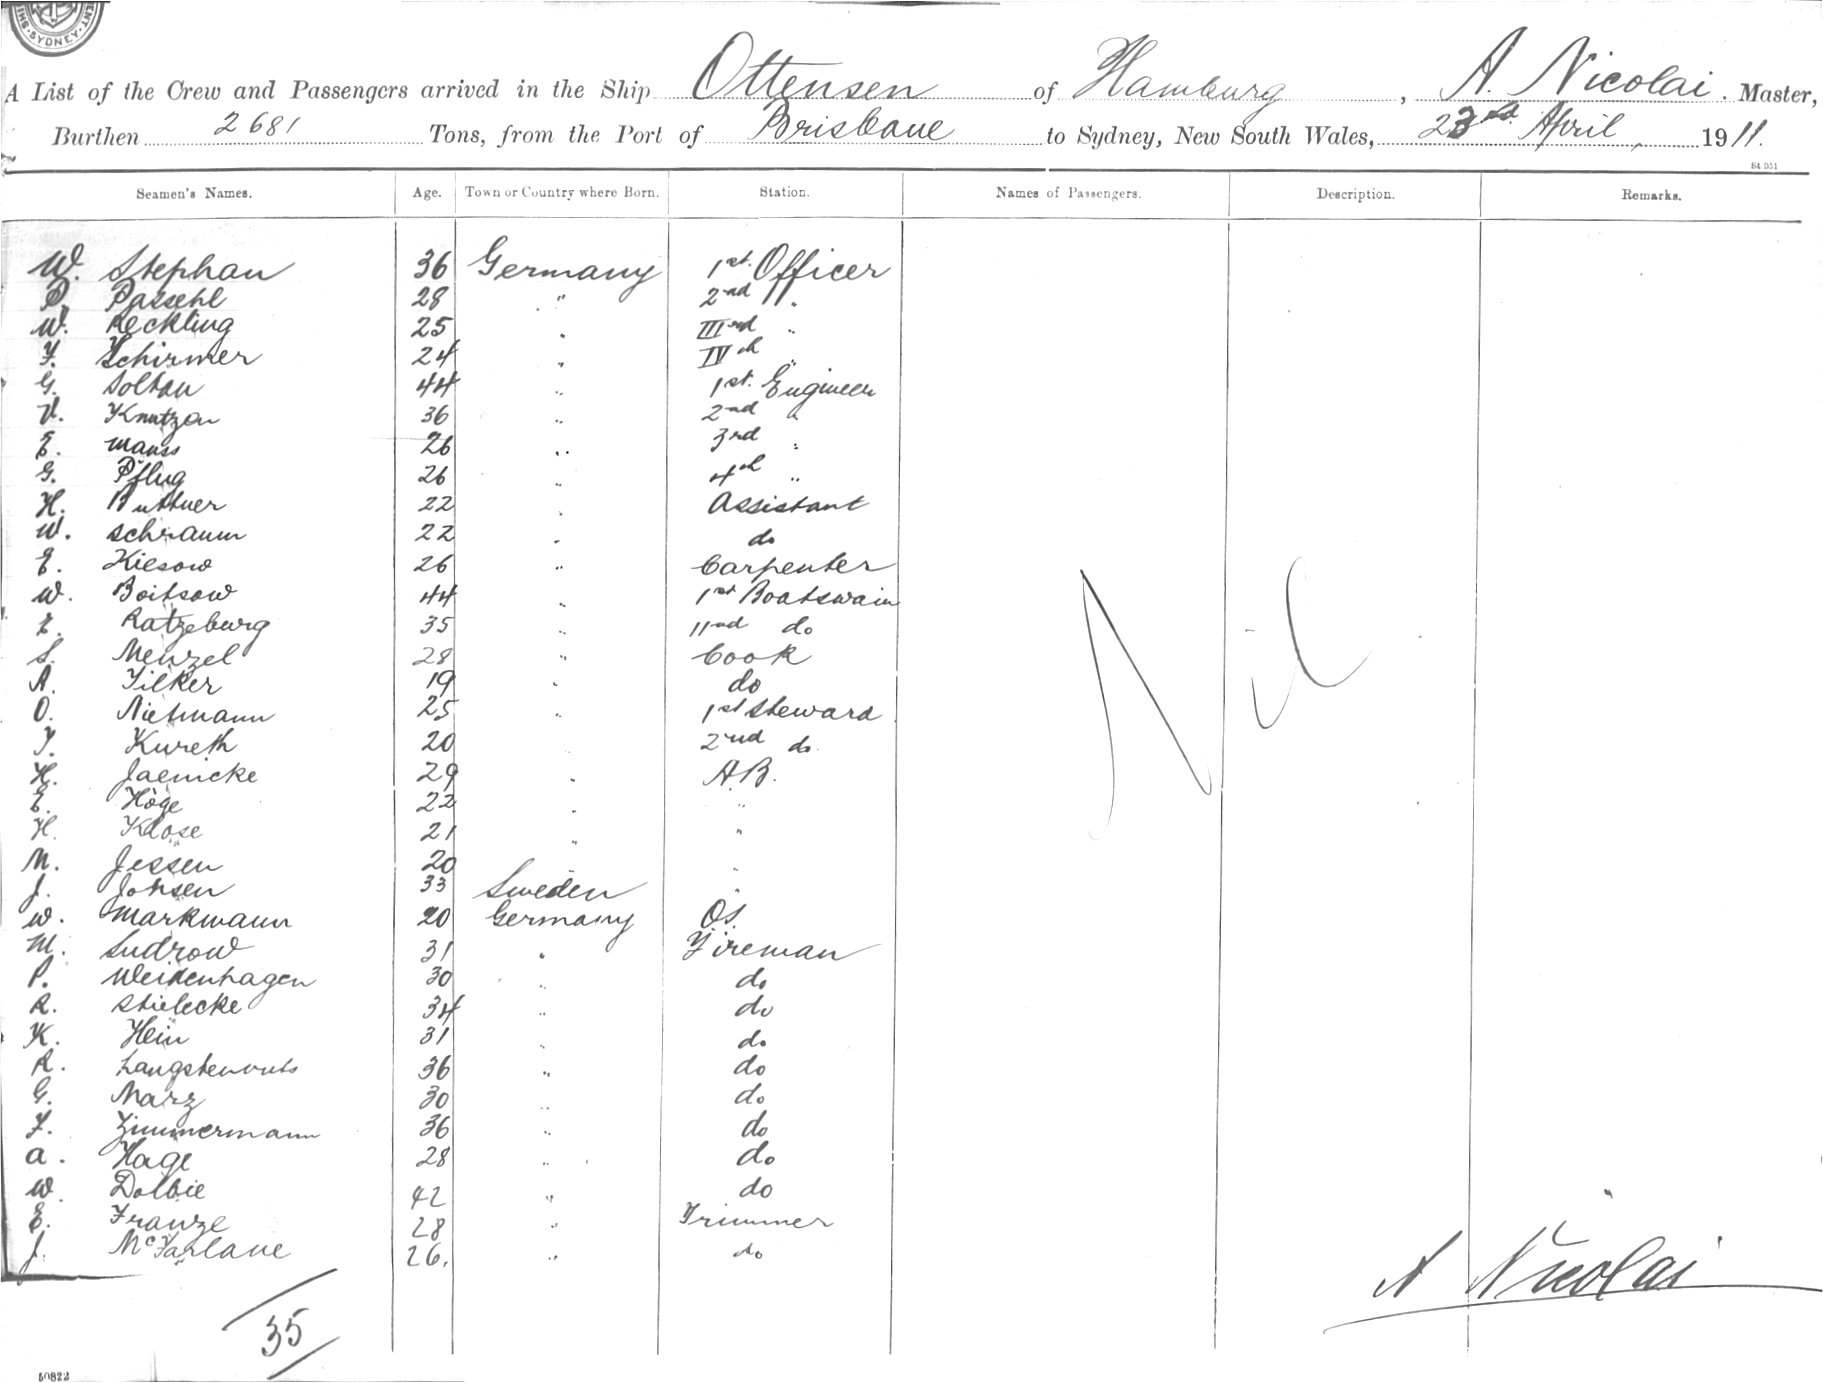 SYDNEY
A List of the Crew and Passengers arrived in the Ship Ottensen of Hamburg, A. Nicolai. Master,
Burthen 2681 Tons, from the Port of Brisbane to Sydney, New South Wales, 23rd April, 1911.
64 951
Seamen's Names. Age. Town or Country where Born. Station. Names of Passengers. Description. Remarks.
W. Stephan 36 Germany 1st. Officer
P. Passehl 28 " 2nd "
W. Reckling 25 " IIIrd "
F. Schirmer 24 " IVth "
G. Soltau 44 " 1st. Engineer
Knutzen 36 " 2nd "
E. Mauss 26 " 3rd "
G. Pflug 26 " 4th "
H. Buttner 22 " Assistant
W. Schramm 22 " do
E. Kiesow 26 " Carpenter
W. Boitsow 44 " 1st Boatswain
E. Ratzeburg 35 " IInd do
S. Menzel 28 " Cook
A. Filker 19 " do
O. Nietmann 25 " 1st Steward
Kureth 20 " 2nd do.
H. Jaenicke 29 " A.B.
E. Höge 22 " "
H. Klose 21 " "
N. Jessen 20 "
J. Johsen 33 Sweden "
W. Markmann 20 Germany O.S.
M. Sudrow 31 " Fireman
P. Weidenhagen 30 " do
R. Stielecke 34 " do
K. Hein 31 " do
R. 36 " do
G. Marz 30 " do
F. Zimmermann 36 " do
A. Hage 28 " do
W. Dolbie 42 " do
E. Franze 28 " Trimmer
J. McFarlane 26. " do
Nil
A Nicolai
35
50822